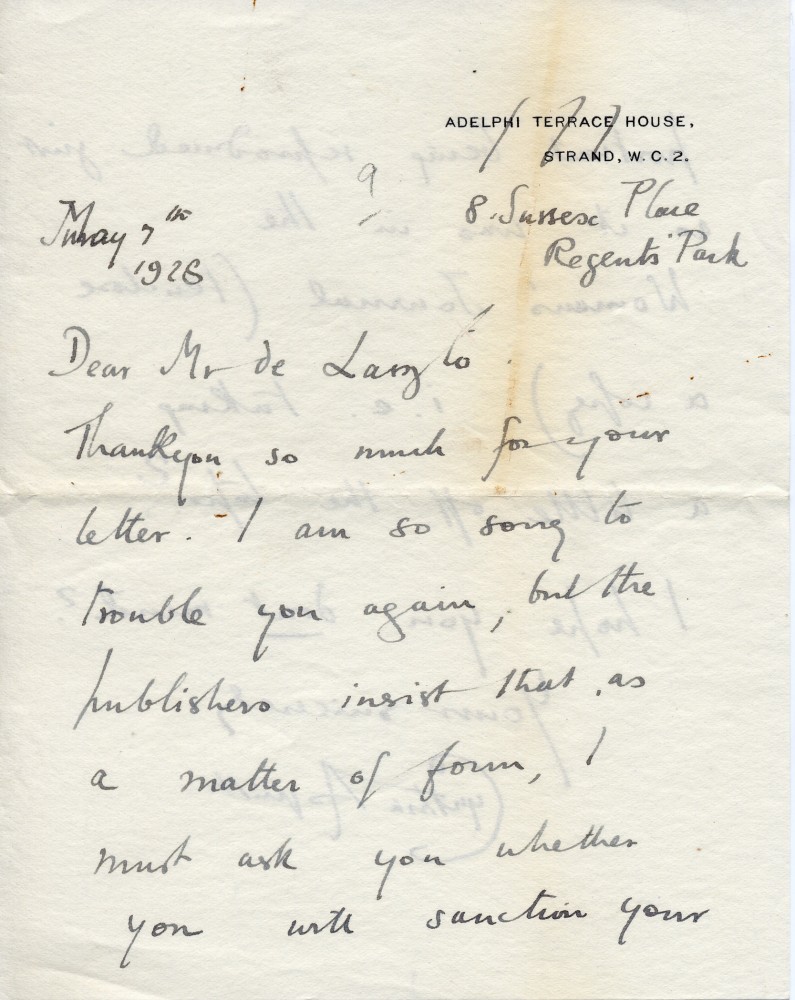 ADELPHI TERRACE HOUSE,
STRAND, W.C.2.
9
8. Sussex Place
Regents Park
May 7th
1928
Dear Mr de Laszlo.
Thankyou so much for your
letter. I am so sorry to
trouble you again, but the
publishers insist that, as
a matter of form, I
must ask you whether
you will sanction your